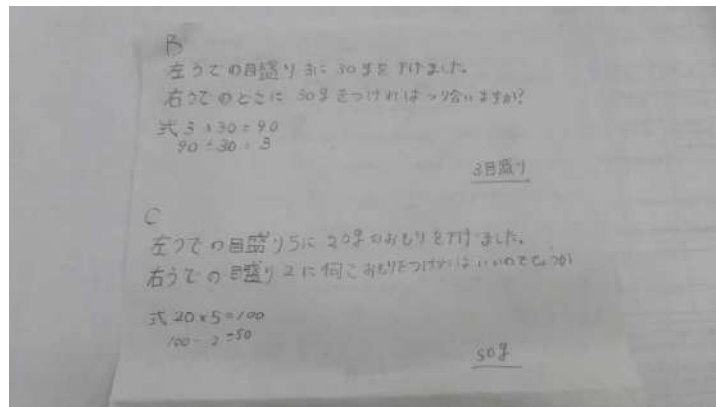 B
左うでの目盛り3に30gを下げました。
右うでのどこに30gをつければつり合いますか?
式 3×30=90
90÷30=3
3目盛り
C
左うでの目盛り5に20gのおもりを下げました。
右うでの目盛り2に何こおもりをつければいいのでしょうか
式 20×5=100
100÷2=50
50g